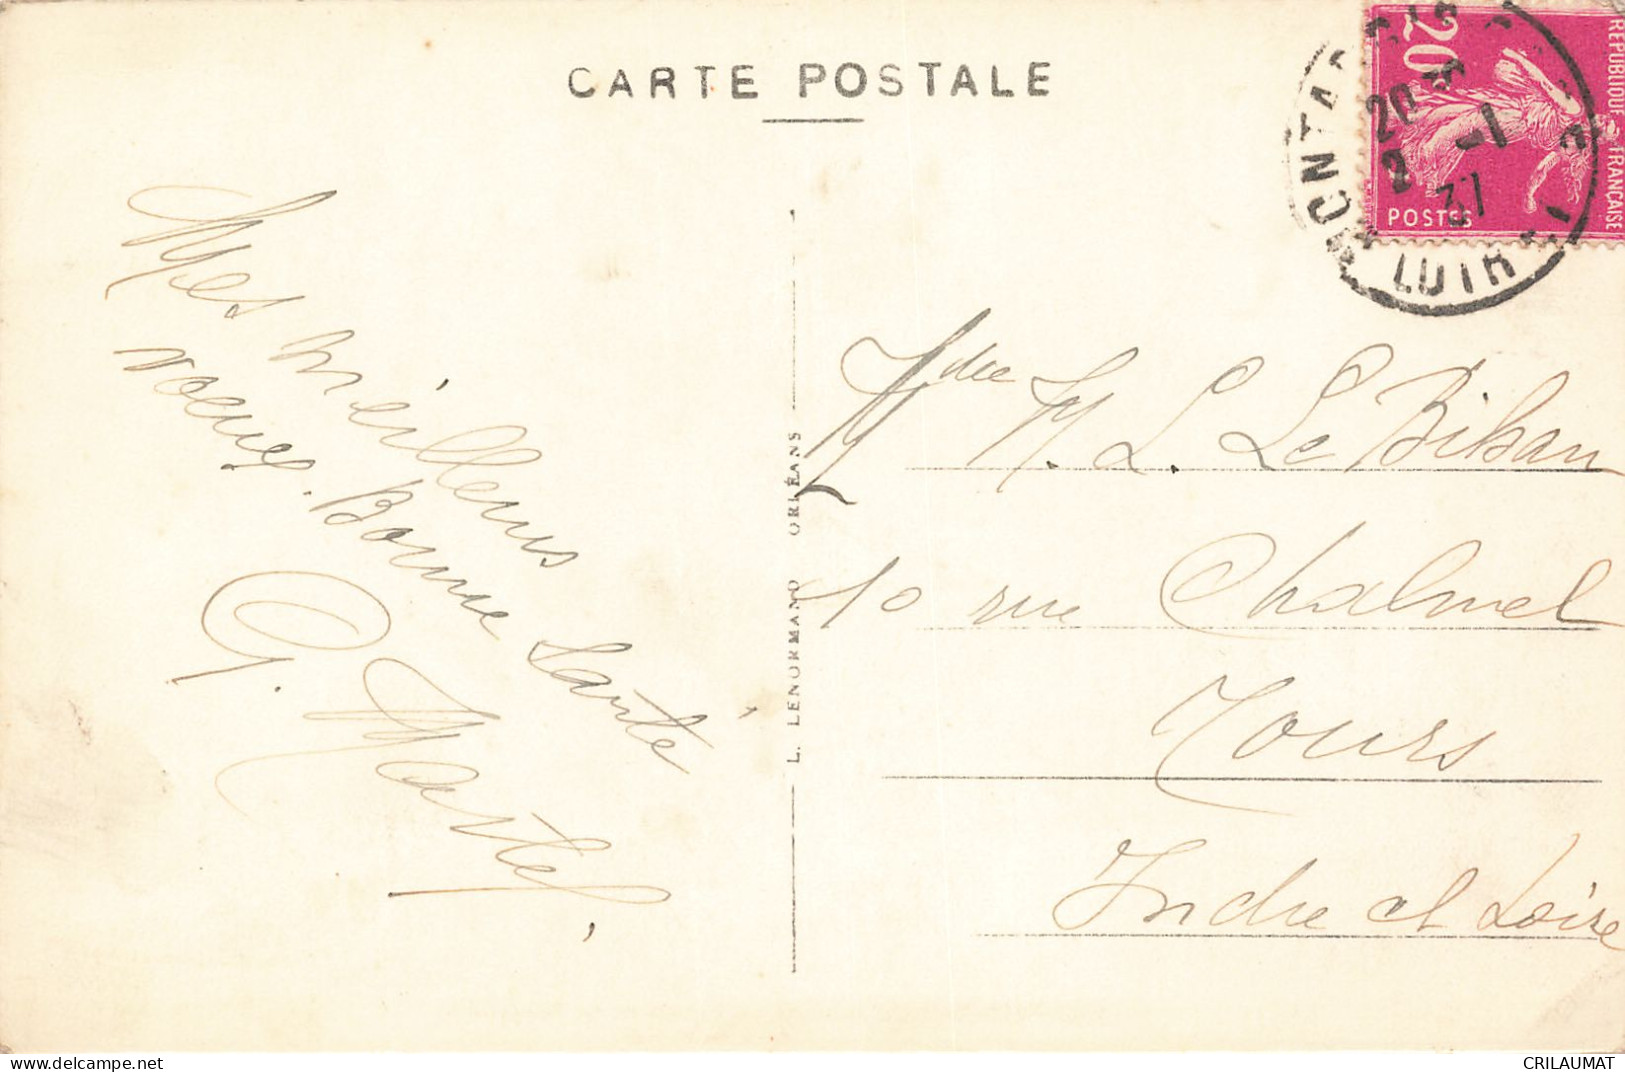 CARTE POSTALE
20
REPUBLIQUE FRANÇAISE
POSTES
20
2 -1
37
Mes meilleurs
voeux. Bonne Santé
G. Martel
L. LENORMAND ORLÉANS
Mdme M. L. Le Bihan
10 rue Chalmel
Tours
Indre et Loire
www.delcampe.net
CRILAUMAT